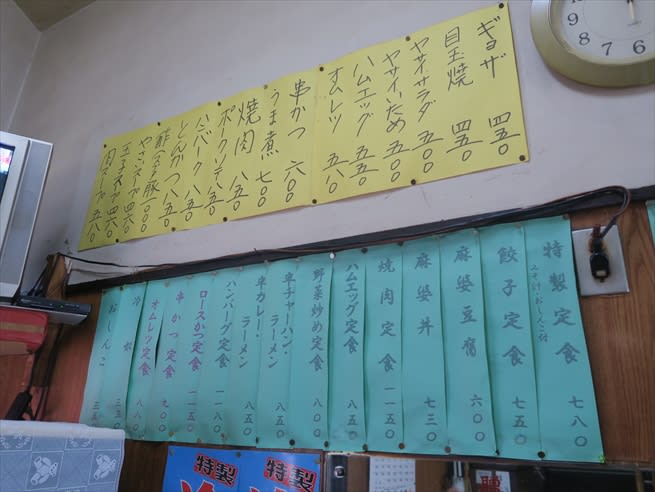 ギョザ 四五〇
目玉焼 四五〇
ヤサイサラダ 五〇〇
ヤサイいため 五〇〇
ハムエッグ 五五〇
オムレツ 五八〇
串かつ 六〇〇
うま煮 七〇〇
焼肉 八五〇
ポークソテー 八五〇
ハンバーグ 八五〇
とんかつ 八五〇
酢豚 一〇〇〇
やさいスープ 四六〇
玉子スープ 四六〇
肉スープ 五八〇
特製定食 七八〇
みそ汁・おしんこ付
餃子定食 七五〇
麻婆豆腐 六〇〇
麻婆丼 七三〇
焼肉定食 一一五〇
ハムエッグ定食 八五〇
野菜炒め定食 八〇〇
半チャーハン・ラーメン 八五〇
半カレー・ラーメン 八五〇
ハンバーグ定食 一一八〇
ロースかつ定食 一一五〇
串かつ定食 九〇〇
オムレツ定食 八八〇
冷奴 三五〇
おしんこ
特製
特製
3
4
5
6
7
8